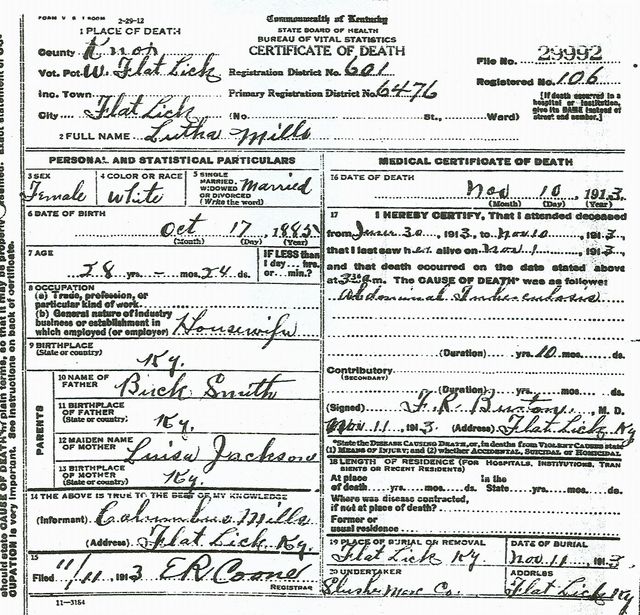 FORM V. S. 1
2-29-12
1 PLACE OF DEATH
County Knox
Vot. Pct. W. Flat Lick
Inc. Town
City Flat Lick (No. St., Ward)
2 FULL NAME Lutha Mills
Commonwealth of Kentucky
STATE BOARD OF HEALTH
BUREAU OF VITAL STATISTICS
CERTIFICATE OF DEATH
Registration District No. 601
Primary Registration District No. 6476
File No. 29992
Registered No. 106
[If death occurred in a
hospital or institution,
give its NAME instead of
street and number.]
PERSONAL AND STATISTICAL PARTICULARS
3 SEX
Female
4 COLOR OR RACE
White
5 SINGLE
MARRIED,
WIDOWED
OR DIVORCED
(Write the word)
Married
6 DATE OF BIRTH
Oct 17, 1885
(Month) (Day) (Year)
7 AGE
28 yrs. – mos. 24 ds.
IF LESS than
1 day... hrs.
or... min.?
8 OCCUPATION
(a) Trade, profession, or
particular kind of work
(b) General nature of industry
business or establishment in
which employed (or employer) Housewife
9 BIRTHPLACE
(State or country)
Ky.
PARENTS
10 NAME OF
FATHER Buck Smith
11 BIRTHPLACE
OF FATHER
(State or country) Ky.
12 MAIDEN NAME
OF MOTHER Luisa Jackson
13 BIRTHPLACE
OF MOTHER
(State or country) Ky.
14 THE ABOVE IS TRUE TO THE BEST OF MY KNOWLEDGE
(Informant) Columbus Mills
(Address) Flat Lick, Ky.
15
Filed 11/11, 1913 ER
REGISTRAR
11—3184
MEDICAL CERTIFICATE OF DEATH
16 DATE OF DEATH
Nov 10, 1913.
(Month) (Day) (Year)
17 I HEREBY CERTIFY, That I attended deceased
from June 30, 1913, to Nov 10, 1913,
that I last saw her alive on Nov 1, 1913,
and that death occurred on the date stated above
at 3 m. The CAUSE OF DEATH* was as follows:
Abdominal Tuberculosis
(Duration) yrs. 10 mos. ds.
Contributory
(SECONDARY)
(Duration) yrs. mos. ds.
(Signed) F. R. Burton, M. D.
Nov 11, 1913 (Address) Flat Lick Ky
*State the DISEASE CAUSING DEATH, or, in deaths from VIOLENT CAUSES state
(1) MEANS OF INJURY; and (2) whether ACCIDENTAL, SUICIDAL or HOMICIDAL
18 LENGTH OF RESIDENCE (FOR HOSPITALS, INSTITUTIONS, TRAN
SIENTS OR RECENT RESIDENTS)
At place In the
of death yrs. mos. ds. State yrs. mos. ds.
Where was disease contracted,
if not at place of death?
Former or
usual residence
19 PLACE OF BURIAL OR REMOVAL
Flat Lick Ky
DATE OF BURIAL
Nov. 11, 1913
20 UNDERTAKER
Slusher Co.
ADDRESS
Flat Lick Ky
should state CAUSE OF DEATH in plain terms, so that it may be
CUPATION is very important. See instructions on back of certificate.